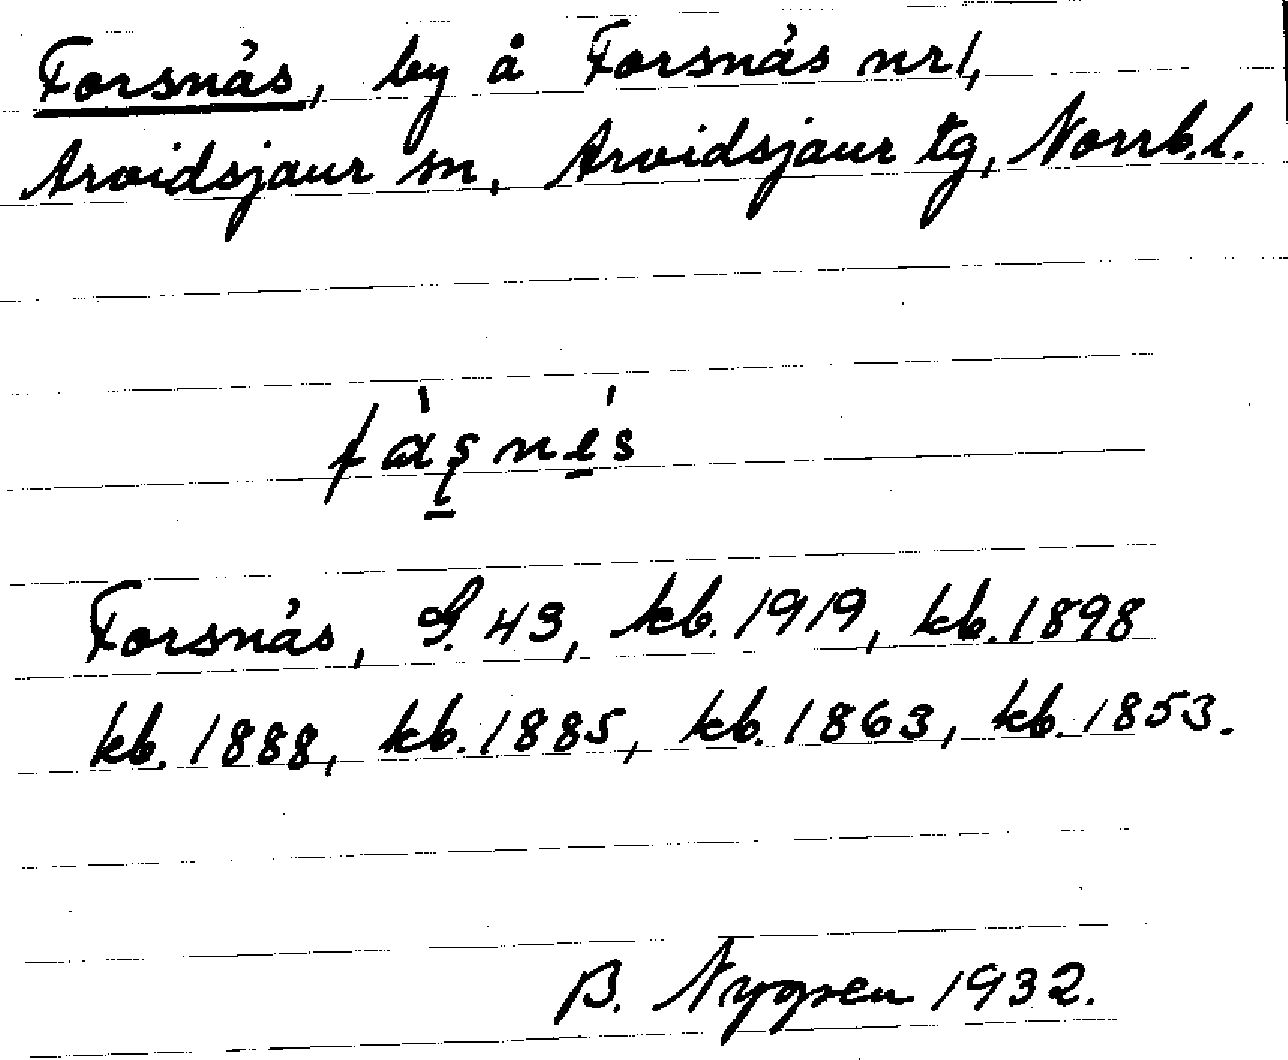 Forsnäs, by å Forsnäs nr 1,
Arvidsjaur sn, Arvidsjaur tg, Norrb. l.
Forsnäs, S. 43, kb. 1919, kb. 1898
kb. 1888, kb. 1885, kb. 1863, kb. 1853.
B. Nygren 1932.